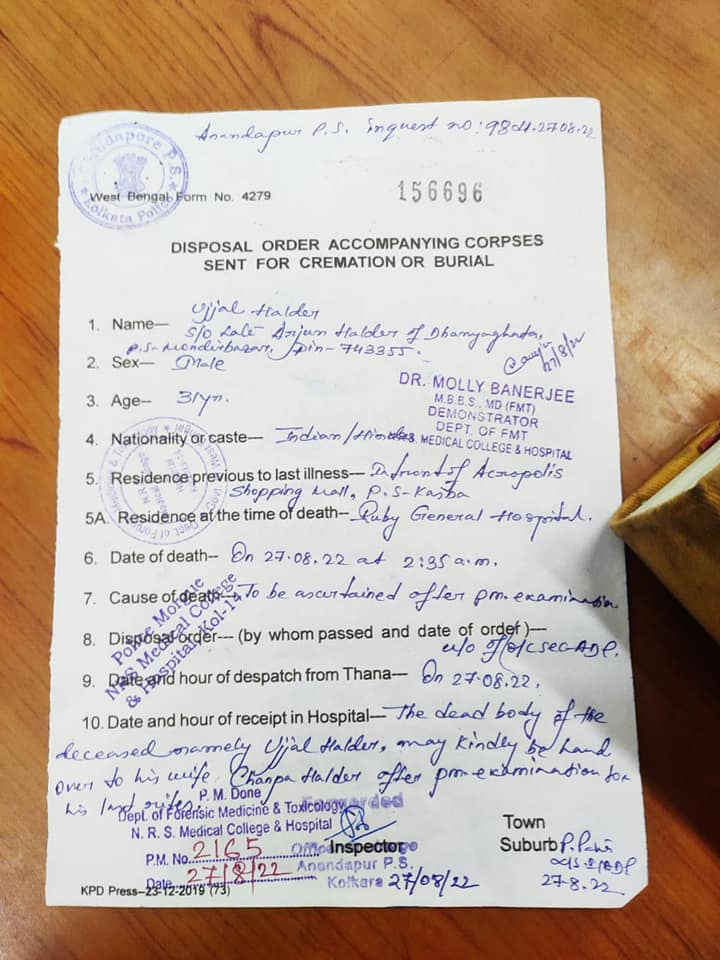 Anandapur P.S. inquest no: 98 dt. 27.08.22
Anandapore P.S.
Kolkata Police
West Bengal Form No. 4279
156696
DISPOSAL ORDER ACCOMPANYING CORPSES
SENT FOR CREMATION OR BURIAL
1. Name— Ujjal Halder
S/O Late Arjun Halder of Dhanyaghata,
P.S- Mondirbazar, Pin- 743355.
27/8/22
2. Sex— Male
DR. MOLLY BANERJEE
M.B.B.S., MD (FMT)
DEMONSTRATOR
DEPT. OF FMT
MEDICAL COLLEGE & HOSPITAL
3. Age— 31yr.
4. Nationality or caste— Indian/Hindu
5. Residence previous to last illness— Infront of Acropolis
Shopping Mall, P.S-Kasba
5A. Residence at the time of death— Ruby General Hospital.
6. Date of death— On 27.08.22 at 2:35 a.m.
7. Cause of death— To be ascertained after pm. examination
Police Morgue
NRS Medical College
& Hospital, Kol-14
8. Disposal order--- (by whom passed and date of order)---
u/o of
9. Date and hour of despatch from Thana— On 27.08.22.
10. Date and hour of receipt in Hospital— The dead body of the
deceased namely Ujjal Halder, may kindly be hand
over to his wife Champa Halder after pm-examination for
his last rites.
P. M. Done
Dept. of Forensic Medicine & Toxicology
N. R. S. Medical College & Hospital
P.M. No. 2165
Date 27/8/22
Forwarded
Inspector
Anandapur P.S.
Kolkara 27/08/22
Town
Suburb
27-8.22
KPD Press–23-12-2019 (73)